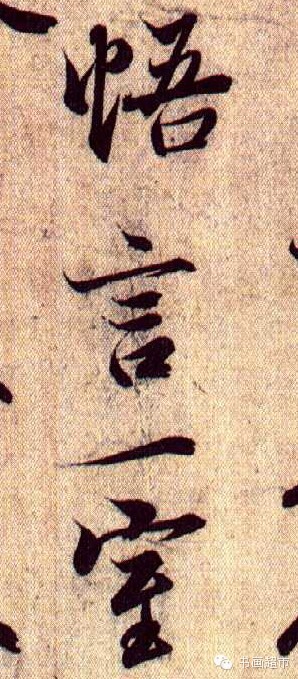 悟言一室
书画超市